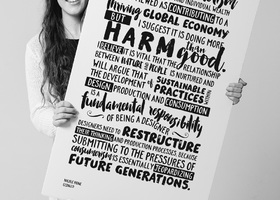 INDIVIDUAL WEALTH
VIEWED AS CONTRIBUTING TO A
THRIVING GLOBAL ECONOMY
BUT I SUGGEST IT IS DOING MORE
HARM than good.
I BELIEVE IT IS VITAL THAT THE RELATIONSHIP
BETWEEN NATURE AND PEOPLE IS NURTURED AND
WILL ARGUE THAT SUSTAINABLE
THE DEVELOPMENT OF PRACTICES
DESIGN, PRODUCTION AND CONSUMPTION
IS a fundamental responsibility
OF BEING A DESIGNER.
DESIGNERS NEED TO RESTRUCTURE
THEIR THINKING AND PRODUCTION PROCESSES BECAUSE
SUBMITTING TO THE PRESSURES OF
consumerism IS ESSENTIALLY JEOPARDIZING
FUTURE GENERATIONS.